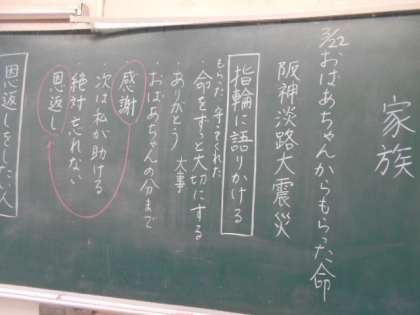 家族
3/22 おばあちゃんからもらった命
阪神淡路大震災
指輪に語りかける
もらった 守ってくれた
・命をずっと大切にする
・ありがとう 大事
・おばあちゃんの分まで
感謝
・次は私が助ける
・絶対忘れない
恩返し
恩返しをしたい人